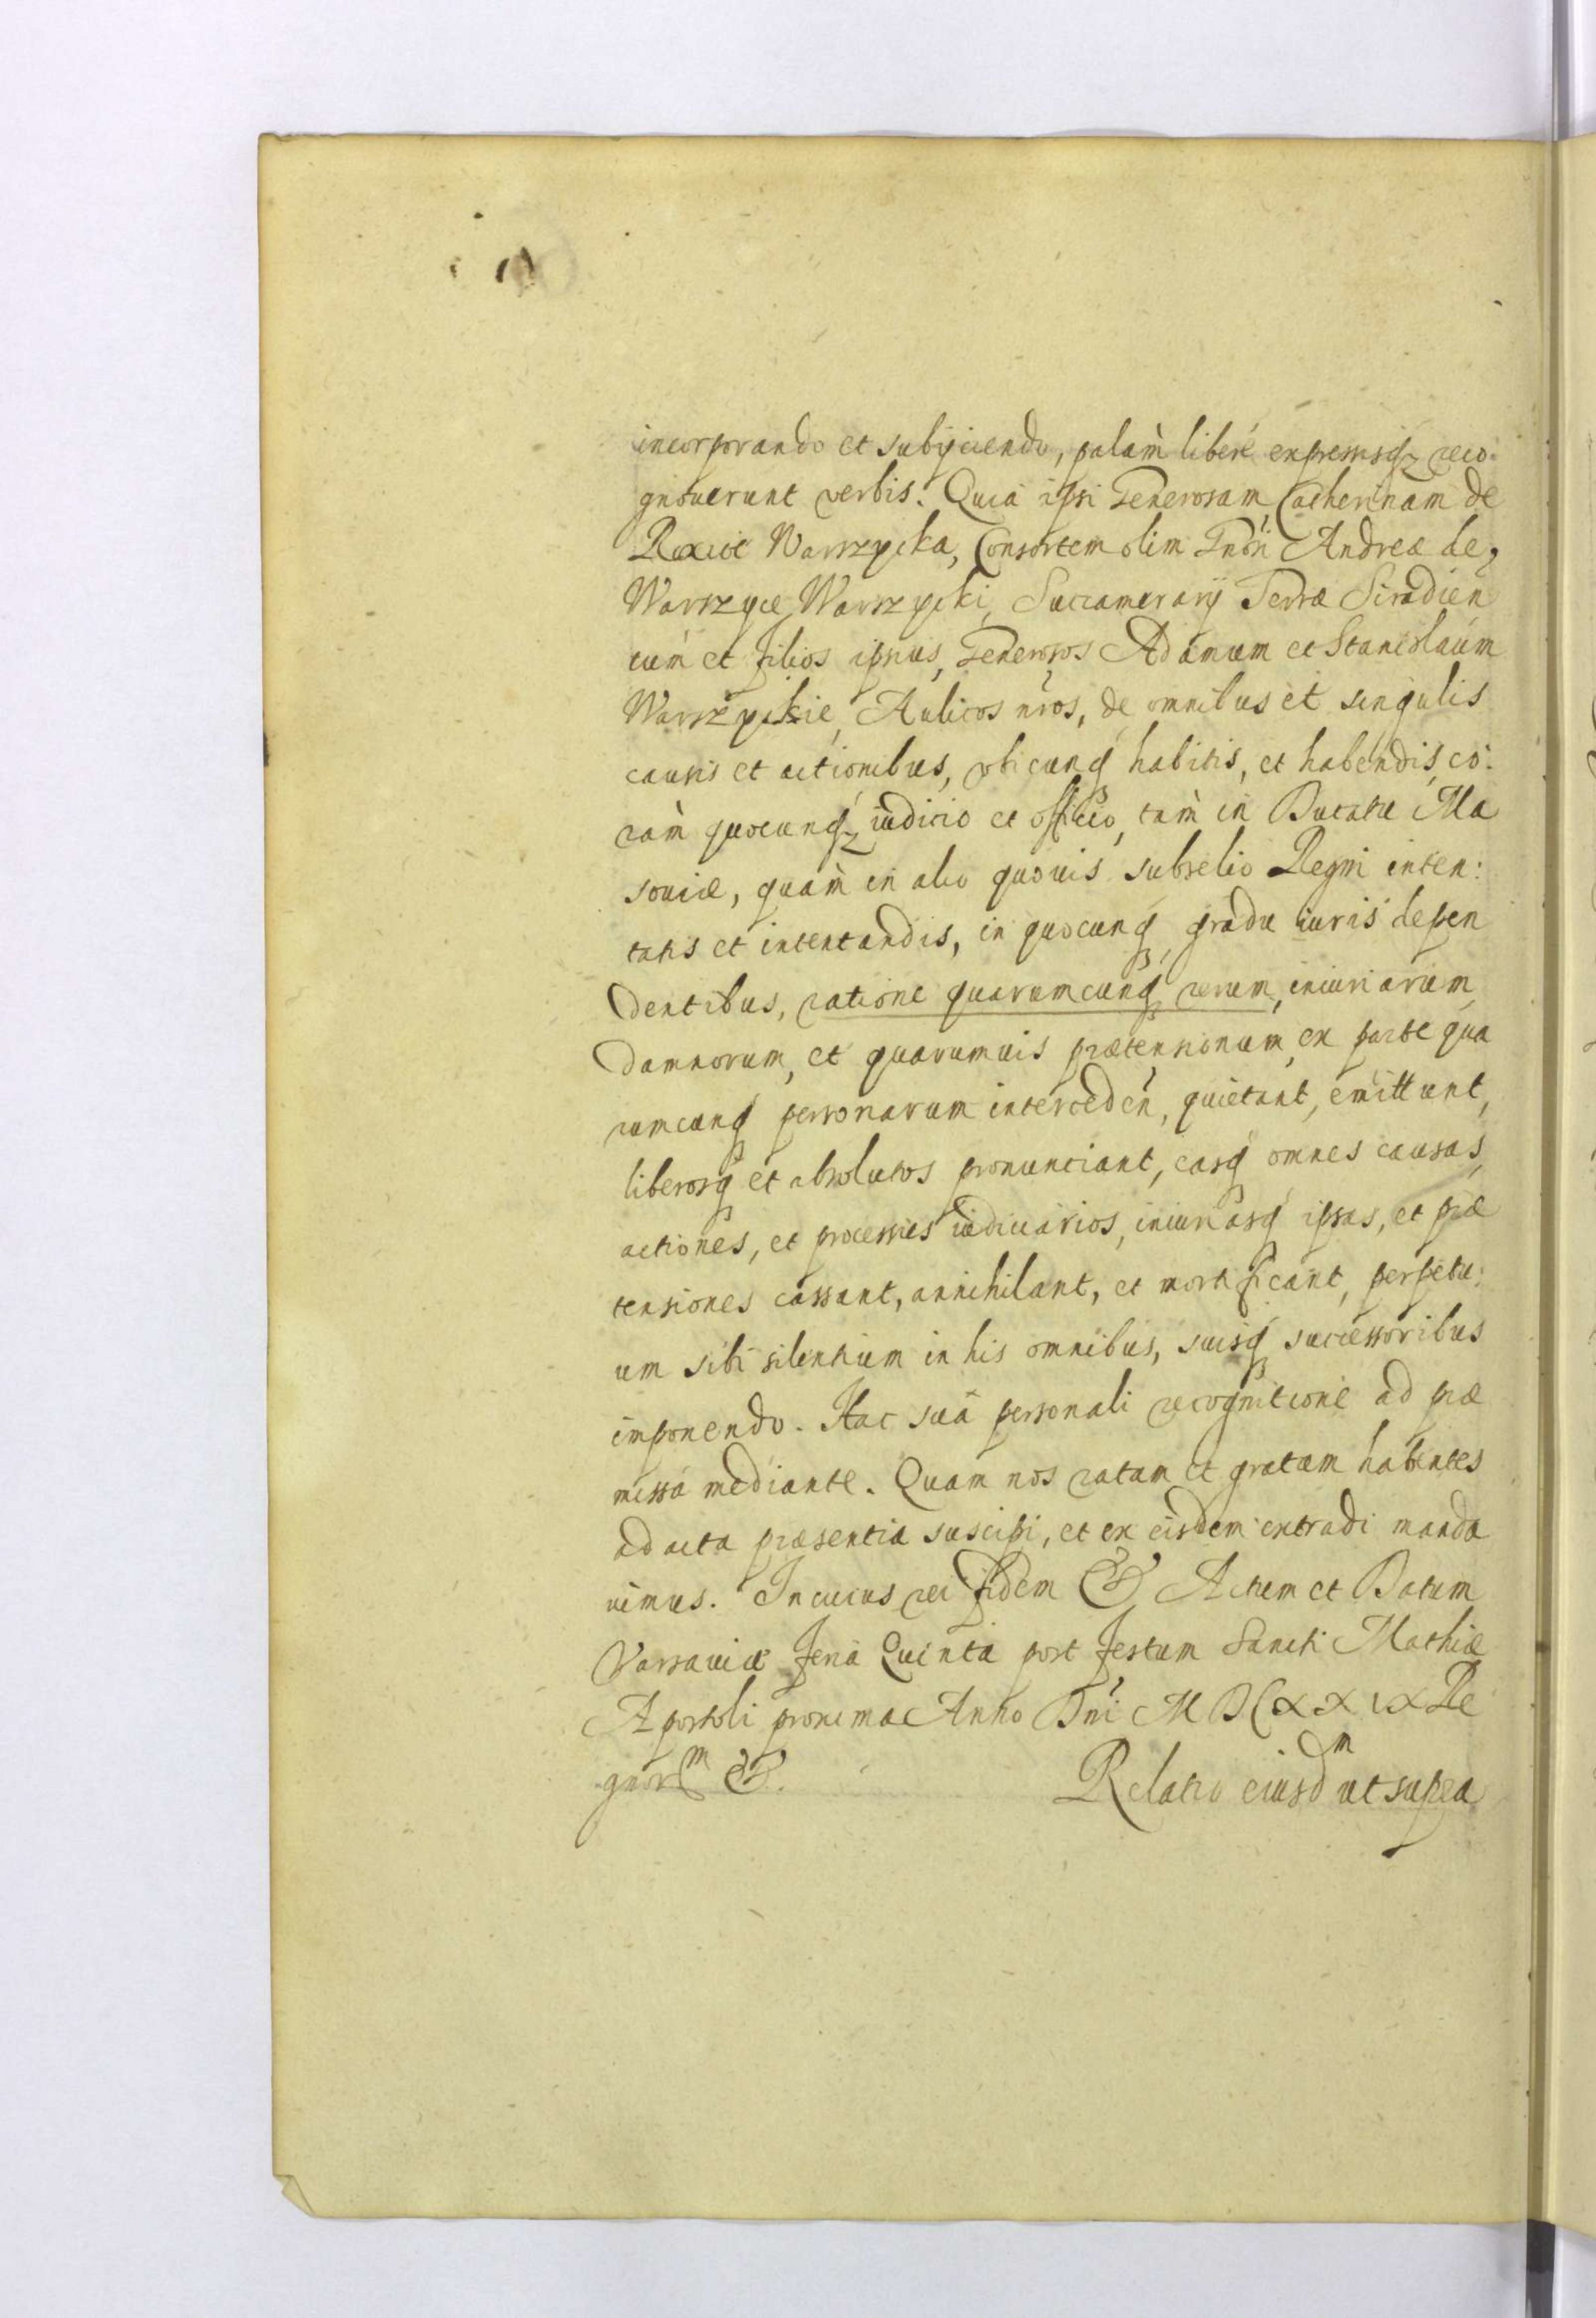 incorporando et subijciendo, palàm liberè expressisq́ reco:
gnouerunt verbis. Quia ipsi Generosam Catherinam de
Warszycka, Consortem olim Gnõri Andreæ de,
Warszyce Warszycki, Succamerarij Terræ Siradien
cùm et filios ipsius, Generosos Adamum et Stanislaum
Warszyckie, Aulicos nr̃os, de omnibus et singulis
causis et actionibus, vbicunq́ habitis, et habendis, co:
ràm quocunq́ iudicio et officio, tàm in Ducatu Ma
souiæ, quàm in alio quouis subselio Regni inten:
tatis et intentandis, in quocunq́ gradu iuris depen
dentibus, ratione quarumcunq́ rerum, iniuriarum,
damnorum, et quarumuis prætensionum, ex parte qua
rumcunq́ personarum interceden̄, quietant, emittunt,
liberosq́ et absolutos pronunciant, easq́ omnes causas,
actiones, et processus iudiciarios, iniuriasq́ ipsas, et præ
tensiones cassant, annihilant, et mortificant, perpetu:
um sibi silentium in his omnibus, suisq́ successoribus
imponendo. Hac suâ personali recognitione ad præ
missa mediante. Quam nos ratam et gratam habentes
ad acta præsentia suscipi, et ex eisdem extradi manda
uimus. In cuius rei fidem &. Actum et Datum
Varsauiæ feria Quinta post festum Sancti Mathiæ
Apostoli proxima Anno Dn̄i MDCXXIX Re
gnorᵐ &.
Relatio eiusdᵐ ut supra